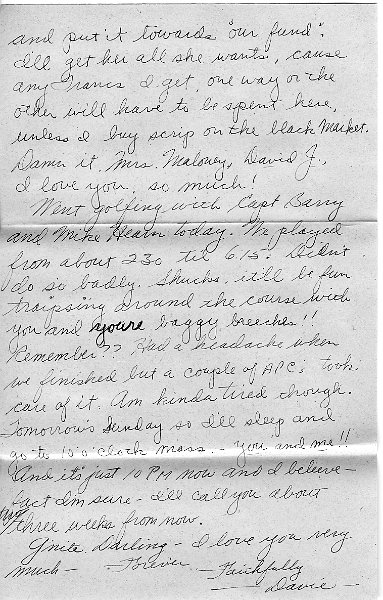 and put it towards "our fund".
I'll get her all she wants, cause
any Francs I get, one way or the
other will have to be spent here,
unless I buy scrip on the black market.
Damn it, Mrs. Maloney, David J.,
I love you, so much!
Went golfing with Capt Barry
and Mike Hearn today. We played
from about 230 til 615. Didn't
do so badly. Shucks, it'll be fun
traipsing around the course with
you and youre baggy breeches!!
Remember?? Had a headache when
we finished but a couple of APC's took
care of it. Am kinda tired though.
Tomorrow's Sunday so I'll sleep and
go to 10 o'clock mass. - you and me!!
And it's just 10 PM now and I believe -
fact I'm sure - I'll call you about
three weeks from now.
G'nite Darling - I love you very
much - Forever - Faithfully
- Davie -